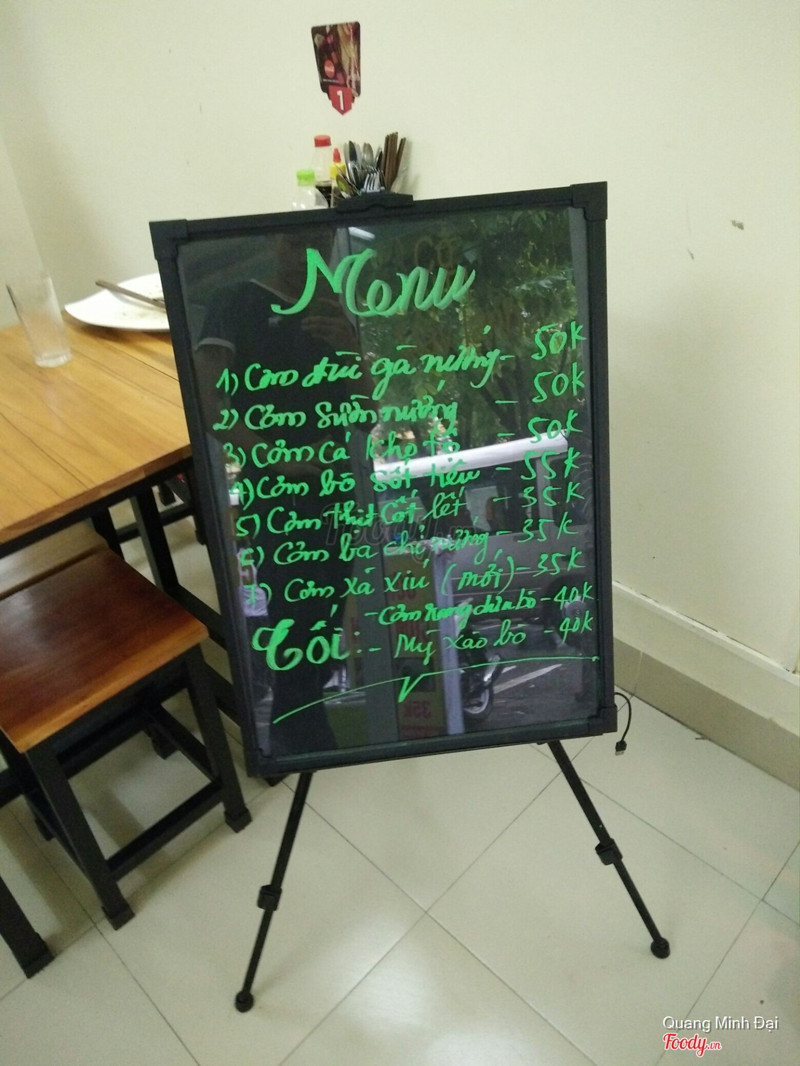 1
Menu
1) Cơm đùi gà nướng - 50k
2) Cơm sườn nướng - 50k
3) Cơm cá kho tộ - 50k
4) Cơm bò sốt tiêu - 55k
5) Cơm thịt cốt lết - 35k
6) Cơm ba chỉ nướng - 35k
7) Cơm xá xíu (mới) - 35k
Tối: - Cơm rang dưa bò - 40k
- Mỳ xào bò - 40k
35k
Quang Minh Đại
Foody.vn